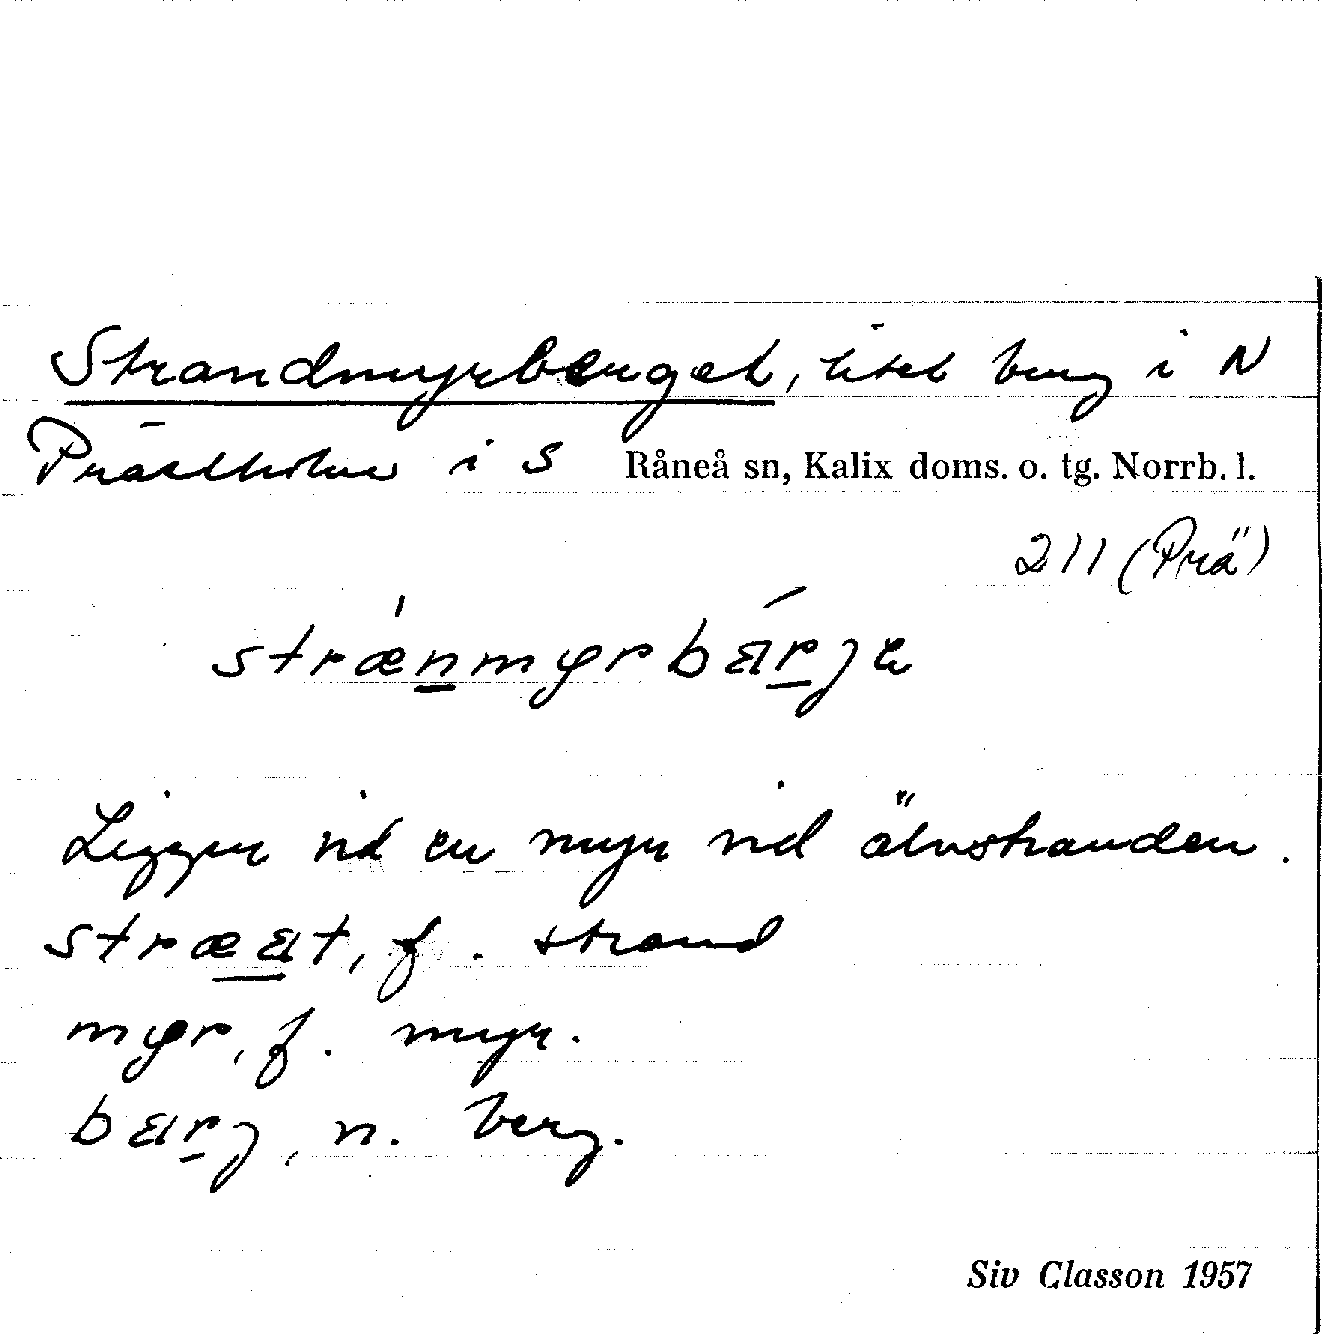 Strandmyrberget, litet berg i N
Prästholm i S Råneå sn, Kalix doms. o. tg. Norrb. l.
211 (Prä)
strænmyrbarje
Ligger vid en myr vid älvstranden.
f. strand
myr, f. myr.
barj, n. berg.
Siv Classon 1957